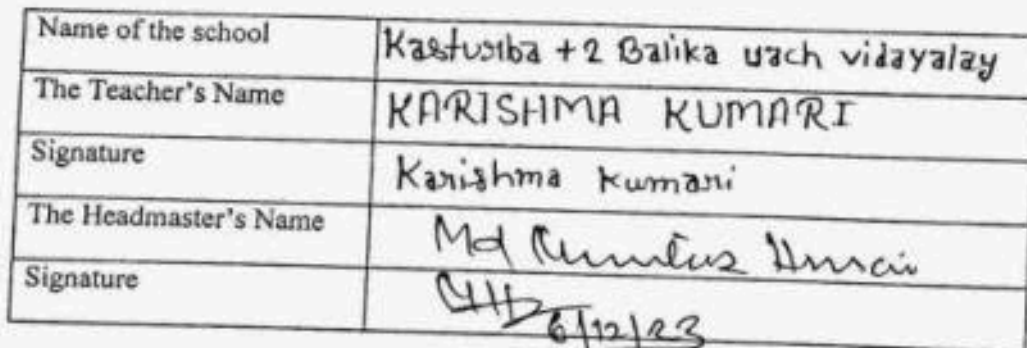 Name of the school Kasturiba +2 Balika uach vidayalay
The Teacher's Name KARISHMA KUMARI
Signature Karishma Kumari
The Headmaster's Name Md
Signature 6/12/23